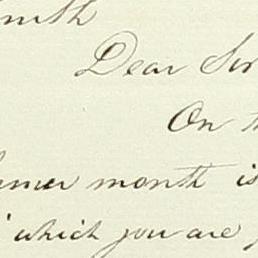 mith
Dear Sir
On th
mer month is
which you are